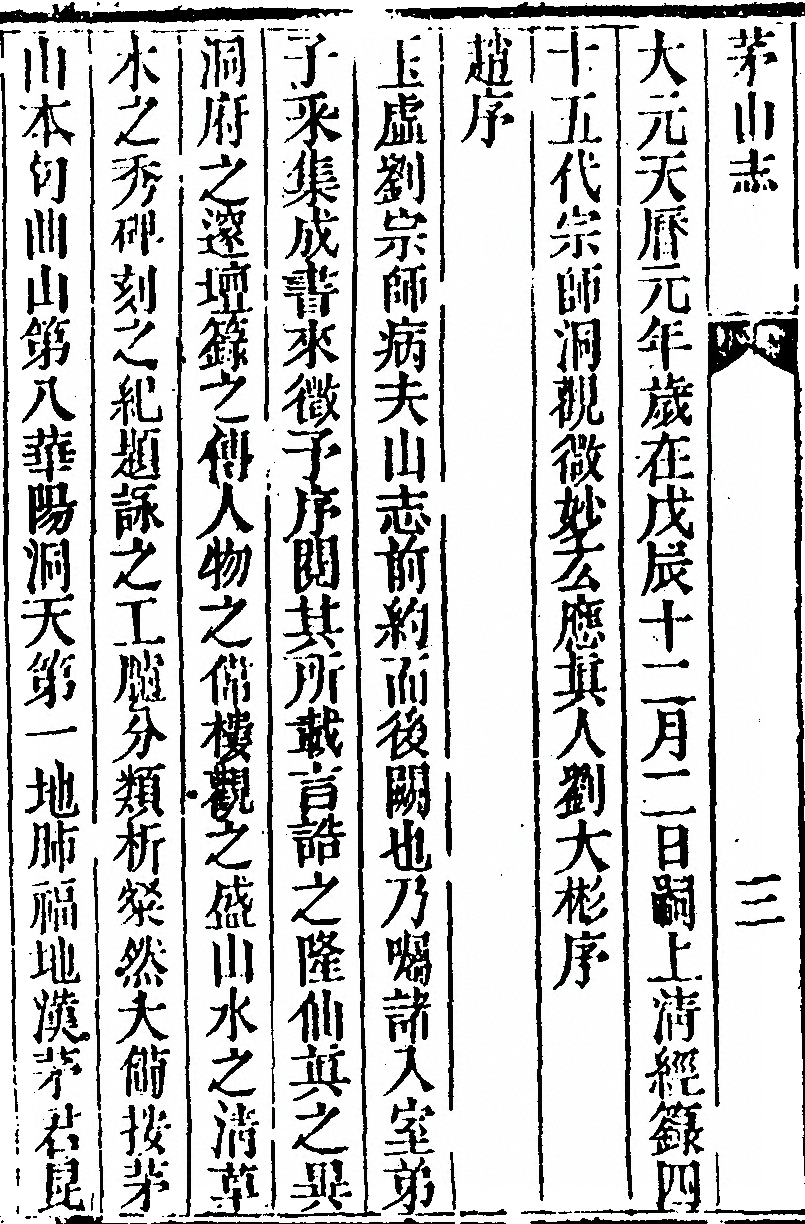 茅山志　三
大元天曆元年歲在戊辰十二月二日嗣上清經籙四
十五代宗師洞觀微妙玄應真人劉大彬序
趙序
玉虛劉宗師病夫山志前約而後闕也乃囑諸入室弟
子采集成書來徵予序閱其所載言誥之隆仙真之異
洞府之邃壇籙之傳人物之偹樓觀之盛山水之清草
木之秀碑刻之紀題詠之工臚分類析粲然大備按茅
山本句曲山第八華陽洞天第一地肺福地漢茅君昆